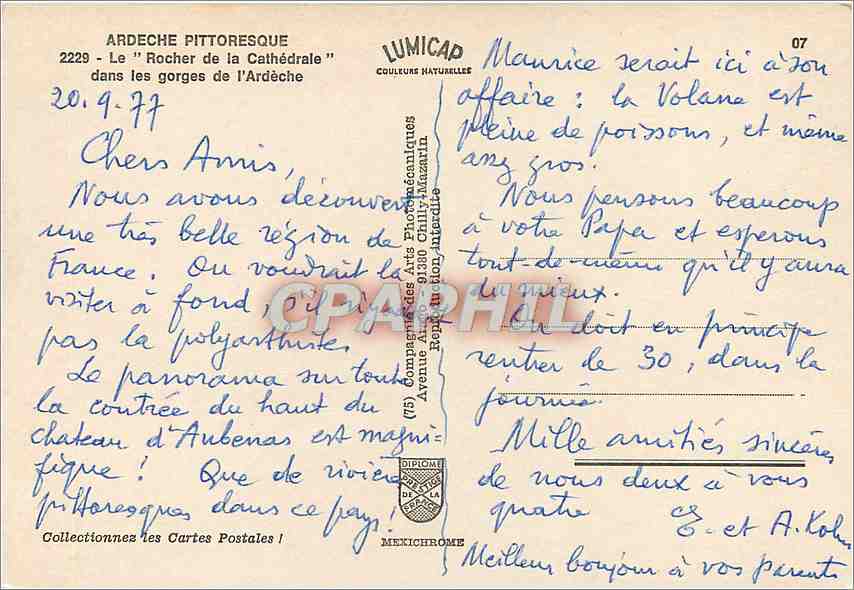 ARDECHE PITTORESQUE
2229 - Le "Rocher de la Cathédrale"
dans les gorges de l'Ardèche
20.9.77
Chers Amis,
Nous avons découvert
une très belle région de
France. On voudrait la
visiter à fond, s'il n'y avait
pas la polyarthrite.
Le panorama sur toute
la contrée du haut du
chateau d'Aubenas est magni-
fique ! Que de rivières
pittoresques dans ce pays !
Collectionnez les Cartes Postales !
LUMICAP
COULEURS NATURELLES
(75) Compagnie des Arts Photomécaniques
Avenue - 91380 Chilly-Mazarin
Reproduction interdite
CPARPHIL
DIPLOME
PRESTIGE
DE LA
FRANCE
MEXICHROME
07
Maurice serait ici à son
affaire : la Volane est
pleine de poissons, et même
assez gros.
Nous pensons beaucoup
à votre Papa et esperons
tout-de-même qu'il y aura
du mieux.
On doit en principe
rentrer le 30, dans la
journée.
Mille amitiés sincères
de nous deux à vous
quatre
E. et A. Kohn
Meilleur bonjour à vos parents